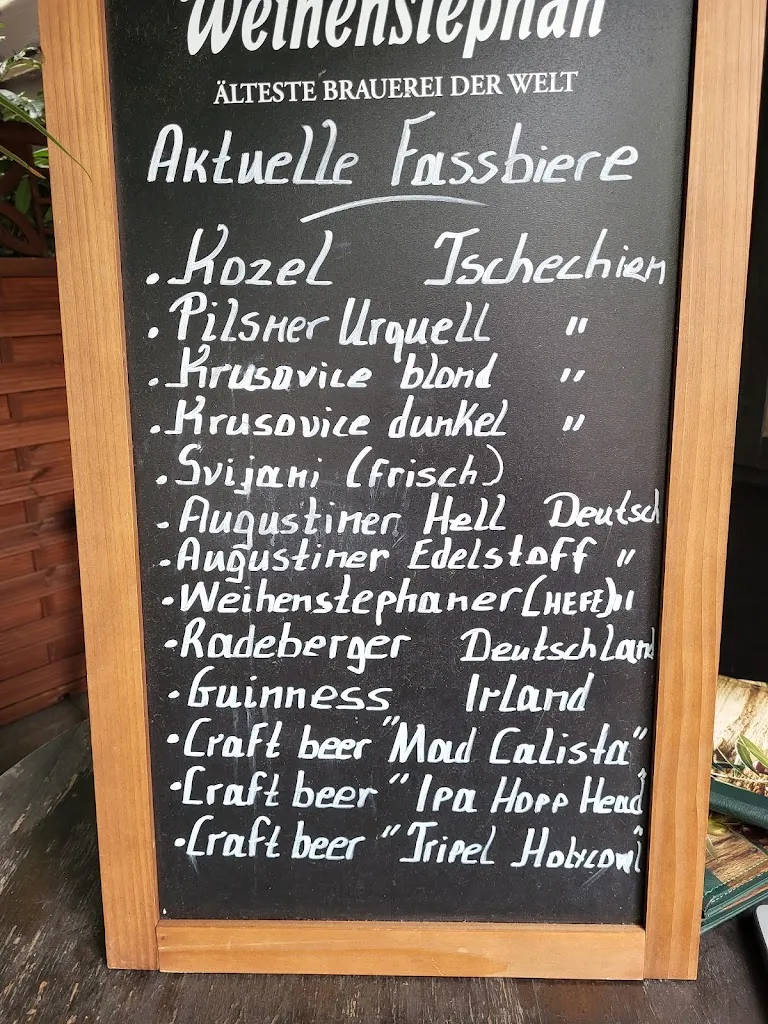 Weihenstephan
ÄLTESTE BRAUEREI DER WELT
Aktuelle Fassbiere
• Kozel Tschechien
• Pilsner Urquell "
• Krusovice blond "
• Krusovice dunkel "
• Svijani (frisch)
• Augustiner Hell Deutsch
• Augustiner Edelstoff "
• Weihenstephaner (HEFE) "
• Radeberger Deutschland
• Guinness Irland
• Craft beer "Mad Calista"
• Craft beer "Ipa Hopp Head
• Craft beer "Tripel Holycowl"